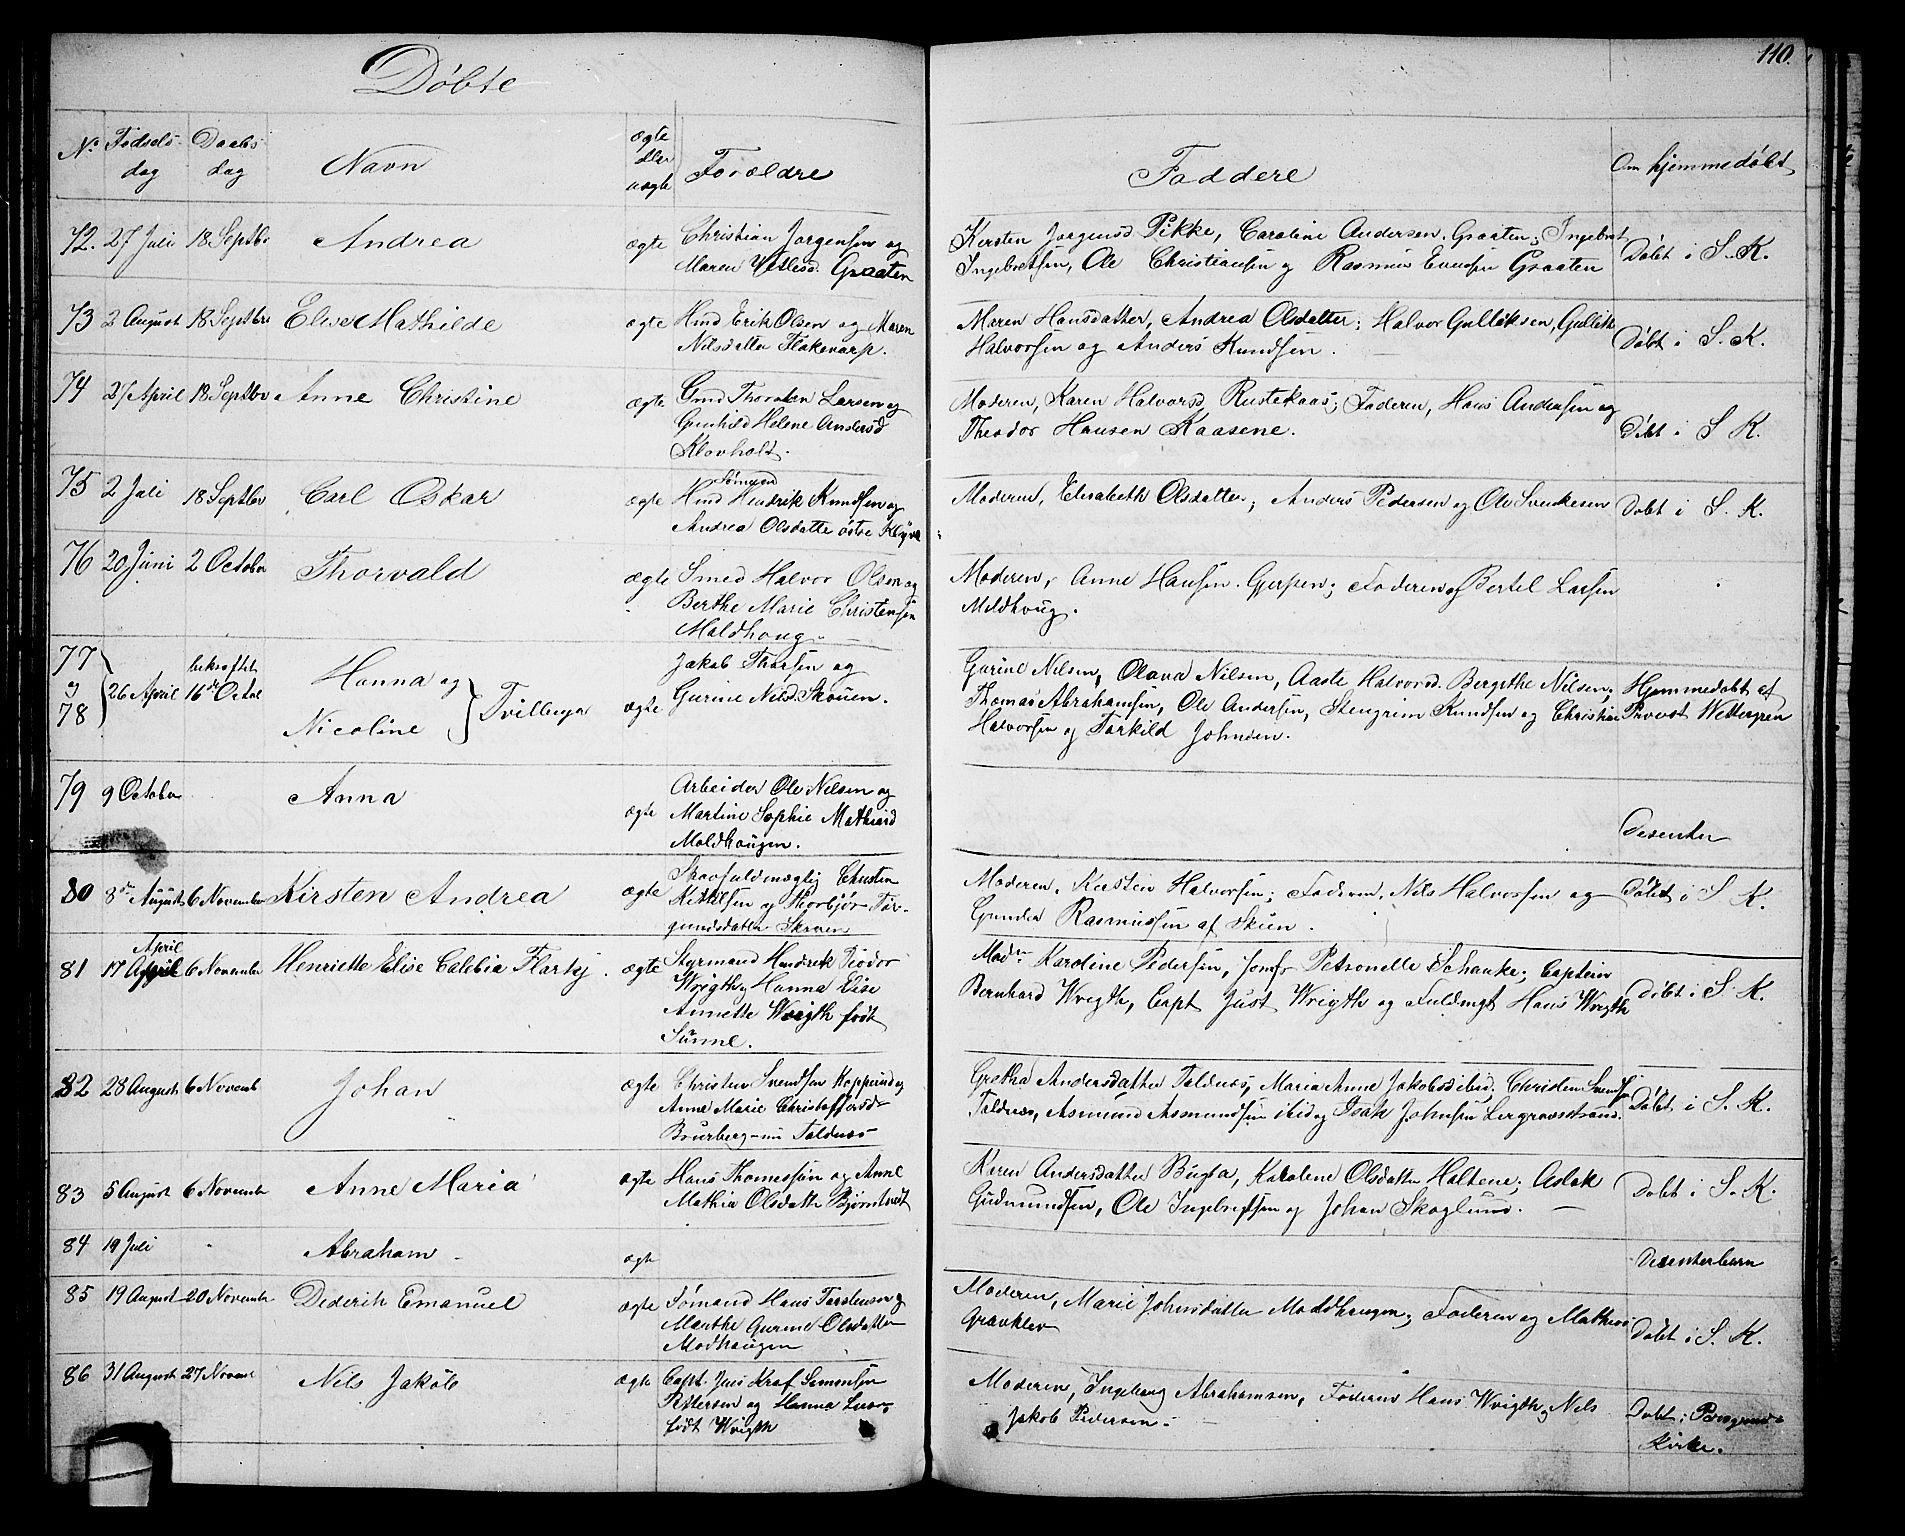 110.
Döbte
No Födsels- dag Daabs- dag Navn ægte eller uægte Forældre Faddere Om hjemmedöbt
72. 27 Juli 18 Septbr Andrea ægte Christian Jorgensen og
Maren Graaten
Kersten Jorgensd Pikke, Caroline Andersen Graaten; Ingebret
Ingebretsen, Ole Christiansen og Rasmus Evensen Graaten
Döbt i S. K.
73 2 August 18 Septbr Elise Mathilde ægte Hmd Erik Olsen og Maren
Nilsdatter Flakevarp.
Maren Hansdatter, Andrea Olsdatter; Halvor Gulliksen, Gullik
Halvorsen og Anders Knudsen.
Döbt i S. K.
74 27 April 18 Septbr Anne Christine ægte Larsen og
Gunhild Helene Andersd
Klovholt.
Moderen, Karen Halvorsd Rustekaas; Faderen, Hans Andersen og
Theodor Hansen Kaasene.
Döbt i S. K.
75 2 Juli 18 Septbr Carl Oskar ægte Sömand
Hmd Hendrik Knudsen og
Andrea Olsdatter östre Klöve
Moderen, Elisabeth Olsdatter; Anders Pedersen og Ole Svenkesen
Döbt i S. K.
76 20 Juni 2 October Thorvald ægte Smed Halvor Olsen og
Berthe Marie Christensen
Moldhoug
Moderen, Anne Hansen Gjerpen; Faderen og Bertel Larsen
Moldhoug.
77
og
78 26 April bekræftet
16de Octob Hanna og
Nicoline Tvillinger ægte Jakob Thorsen og
Gurine Nilsd. Skouen.
Gurine Nilsen, Olava Nilsen, Aaste Halvorsd. Bergithe Nilsen;
Thomas Abrahamsen, Ole Andersen, Stengrim Knudsen og Christian
Halvorsen og Torkild Johnsen.
Hjemmedöbt af
Provst Wettergren
79 9 October Anna ægte Arbeider Ole Nilsen og
Martine Sophie Mathisd
Moldhougen.
Desenter
80 8de August 6 November Kirsten Andrea ægte Skovfuldmægtig Christen
Kittilsen og Thorbjör Tor-
gundsdatter Skroen
Moderen, Kirsten Halvorsen; Faderen, Nils Halvorsen og
Gunder Rasmussen af Skien.
Döbt i S. K.
81 17 April 6 November Henriette Elise Calebia Flarky ægte Styrmand Hendrik Piodor
Wrigth, Hanna Elise
Annette Wrigth födt
Sunne.
Modrn Karoline Pedersen, Jomfr Petronelle Schanke; Captein
Bernhard Wrigth, Capt Just Wrigth og Fuldmgt Hans Wrigth
Döbt i S. K.
82 28 August 6 Novemb Johan ægte Christen Svendsen Kopperud og
Anne Marie Christoffersd-
Brurberg - nu Foldnæs -
Gretha Andersdatter Foldnæs, Maria Anne Jakobsd ibid; Christen Svendsen
Foldnæs, Asmund Asmundsen ibid og Isak Johnsen Lergravstrand.
Döbt i S. K.
83 5 August 6 November Anne Maria ægte Hans Thomessön og Anne
Mathia Olsdatter Björntvedt
Karen Andersdatter Bugta, Karolene Olsdatter Haltene; Aslak
Gudmundsen, Ole Ingebretsen og Johan Skoglund. -
Döbt i S. K.
84 19 Juli " Abraham - ægte
Desenterbarn
85 19 August 20 November Diderik Emanuel ægte Sömand Hans Torstensen og
Marthe Gurine Olsdatter
Modhaugen
Moderen, Marie Johnsdatter Moldhaugen; Faderen og Mathias
Gravklev
Döbt i S. K.
86 31 August 27 Novemb Nils Jakob ægte Capt. Jens Kraf Simonsen
Pettersen og Hanna
födt Wrigth
Moderen, Ingeborg Abrahamsen, Faderen Hans Wrigth, Nils
Jakob Pedersen -
Döbt i Porsgrunds
Kirke.